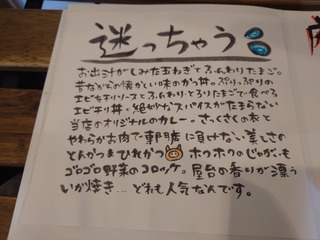 迷っちゃう
お出汁がしみた玉ねぎとふんわりたまご。
昔ながらの懐かしい味のかつ丼。ぷりっぷりの
エビをチリソースとふんわりとろりたまごで食べる
エビチリ丼。絶妙なスパイスがたまらない
当店のオリジナルのカレー。さっくさくの衣と
やわらかお肉で専門店に負けない美しさの
とんかつ&ひれかつ ホクホクのじゃがいも
ゴロゴロ野菜のコロッケ。屋台の香りが漂う
いか焼き…どれも人気なんです。